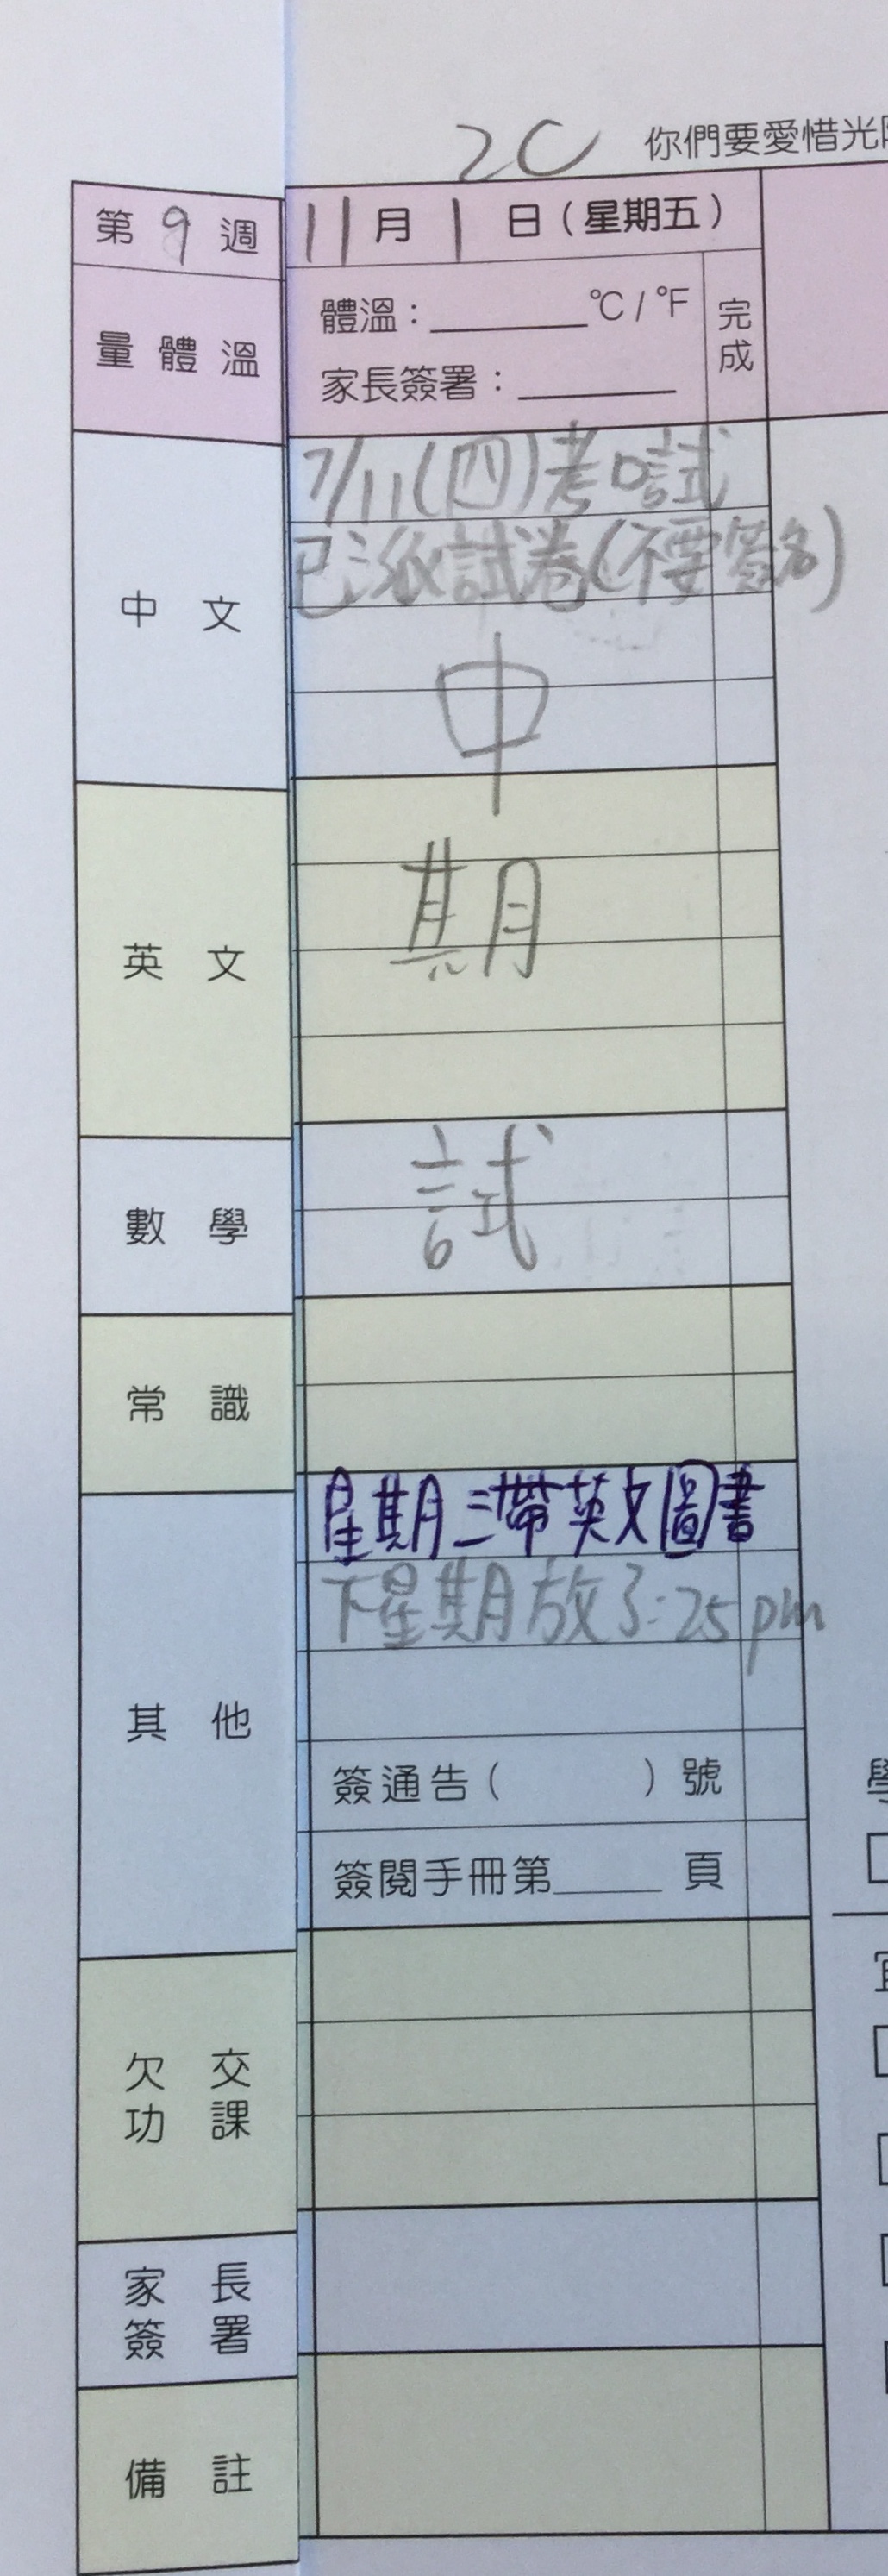 2C 你們要愛惜光
第 9 週 11 月 1 日 ( 星期五 )
量體溫 體溫：______ °C / °F 完成
家長簽署：______
中文 7/11(四)考口試
已派試卷(不要簽名)
中
英文 期
數學 試
常識
其他 星期三帶英文圖書
下星期放3:25pm
簽通告 ( ) 號
簽閱手冊第____ 頁
欠交功課
家長簽署
備註